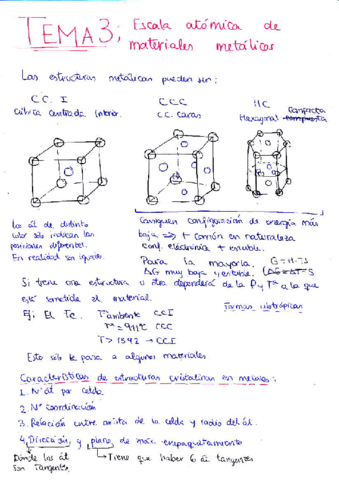 TEMA 3; Escala atómica de
materiales metálicos
Las estructuras metálicas pueden ser:
C C. I
Cúbica Centrada Interior.
C C C
C.C. Caras
HC
Compacta
Hexagonal compuesta
Los át de distinto
color sólo indican las
posiciones diferentes.
En realidad son iguales
Consiguen configuración de energía más
baja ⇒ + común en naturaleza
conf. electrónica + estable.
Para la mayoría G=H-TS
ΔG muy baja y estable.
Si tiene una estructura u otra dependerá de la P y Tª a la que
está sometido el material.
Formas alotrópicas
Ej: El Fe. Tambiente CCI
Tª = 911ºC CCC
T > 1392 → CCI
Esto sólo le pasa a algunos materiales.
Características de estructuras cristalinas en metales:
1. Nº át por celda.
2. Nº coordinación
3. Relación entre arista de la celda y radio del át.
4. Dirección y plano de máx empaquetamiento
Dónde los át
son tangentes
→ Tiene que haber 6 át tangentes